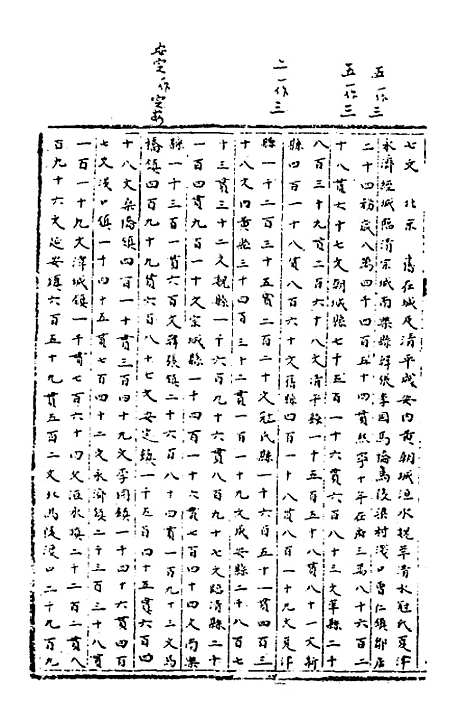 五一作三
五一作三
二一作三
安定一作定安
七文　北京　舊在城及清平成安內黃朝城洹水
永濟經城臨清宗城南樂縣
二十四務歲八萬四千四百五十四貫熙寧十年在府三萬八千六百二
十八貫七十七文朝城縣七千五百一十六貫六百八十三文莘縣二千
八百三十九貫二百六十八文清平縣一千五百五十八貫八十一文
縣四百一十八貫八百六十文縣四百一十八貫八百一十九文夏津
縣一千二百三十五貫二百二十文冠氏縣一千六百五十貫四百三
十八文內黃縣三千四百三十二貫一百一十九文成安縣二千八百七
十三貫三十二文魏縣一千六百九十六貫八百九十七文臨清縣二千
一百四貫九百一十文宗城縣一千四百一十六貫七百四十四文南樂
縣一千三百一貫六百文韓張鎮二千六百八十四貫一百九十二文馬
橋鎮四百九十九貫六百八十七文安定鎮一千五百四十五貫六百四
十八文桑橋鎮四百一十貫三百四十九文李固鎮一千四十六貫四百
七文淺口鎮一千四十五貫七百四十二文永濟鎮二千三百三十八貫
一百一十九文洹城鎮一千貫七百六十四文洹水鎮二千二百二貫八
百九十六文延安鎮六百五十九貫五百二文北馬陵淺口二千九百九